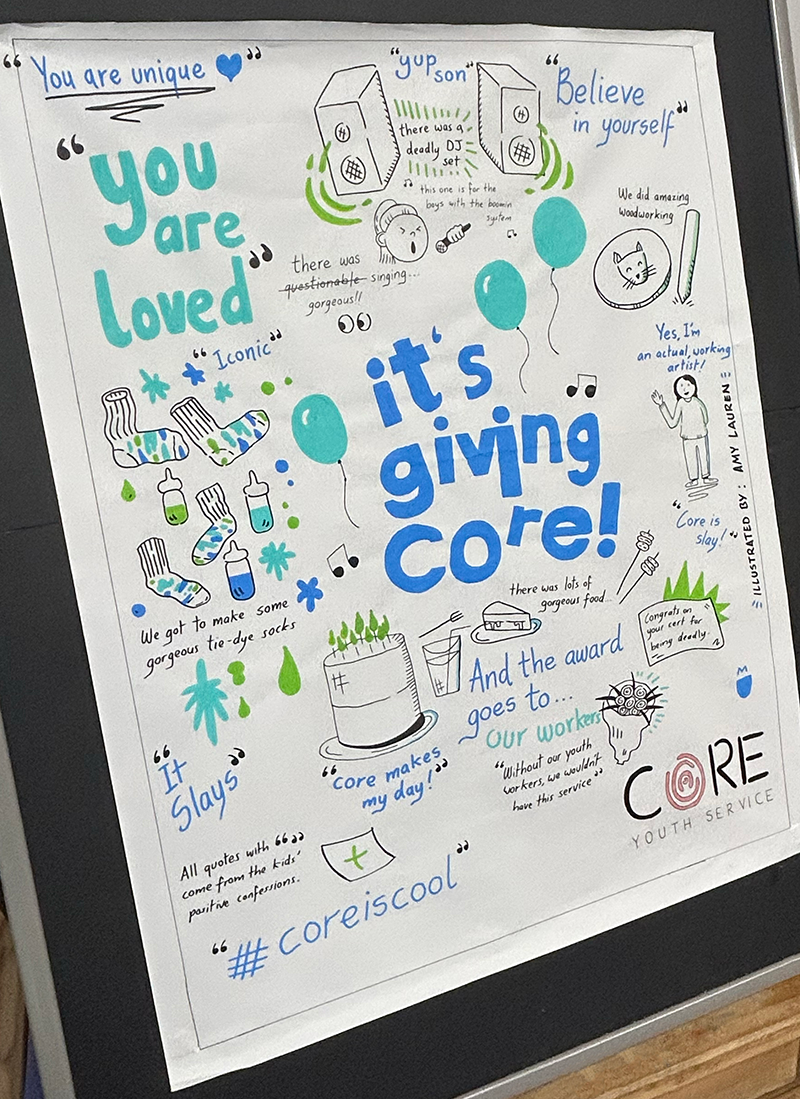 “You are unique”
“yup
son”
“Believe
in yourself”
“you
are
loved”
there was a
deadly DJ
set
this one is for the
boys with the boomin
system
We did amazing
woodworking
there was
questionable singing...
gorgeous!!
“Iconic”
it's
giving
core!
Yes, I'm
an actual, working
artist!
ILLUSTRATED BY: AMY LAUREN
“Core is
slay!”
We got to make some
gorgeous tie-dye socks
there was lots of
gorgeous food...
Congrats on
your cert for
being deadly.
And the award
goes to...
our workers
“Without our youth
workers, we wouldn't
have this service”
“It
Slays”
“Core makes
my day!”
CORE
YOUTH SERVICE
All quotes with “”
come from the kids'
positive confessions.
“#coreiscool”